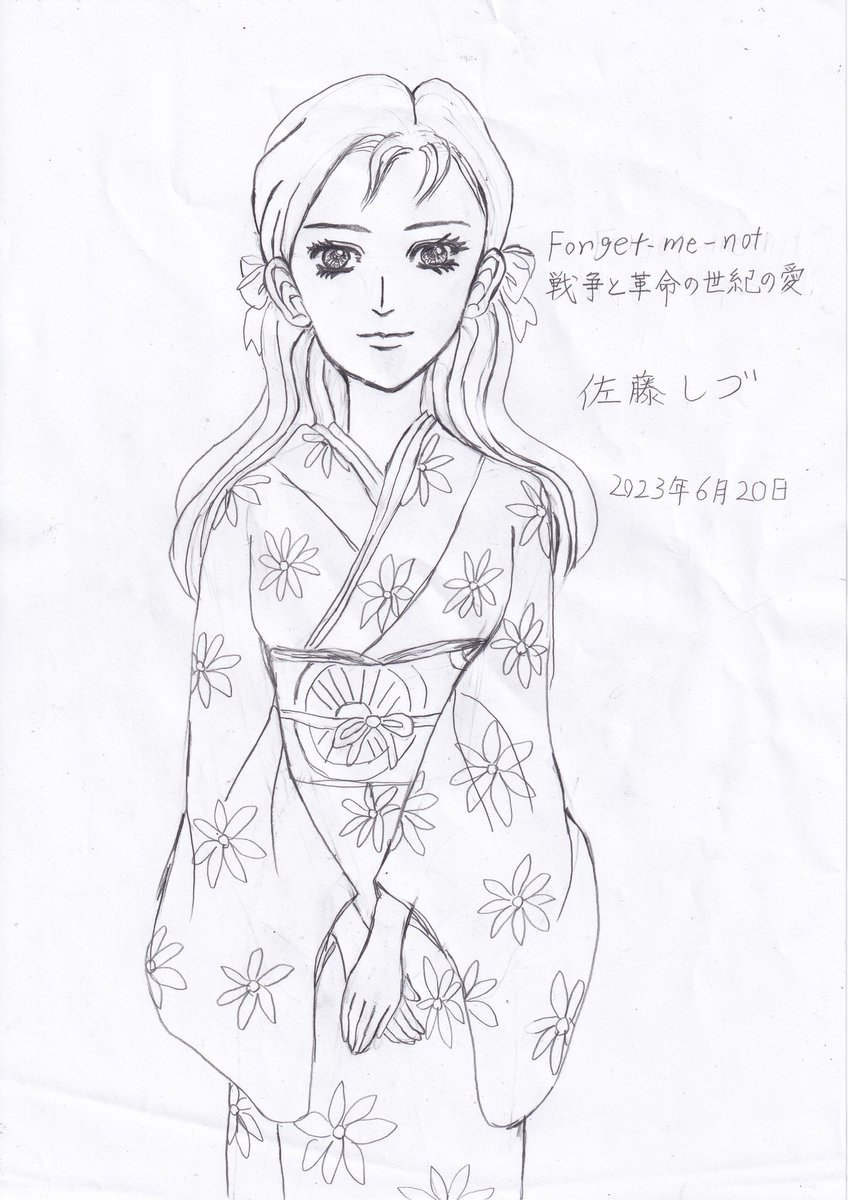 Forget-me-not
戦争と革命の世紀の愛
佐藤しづ
2023年6月20日